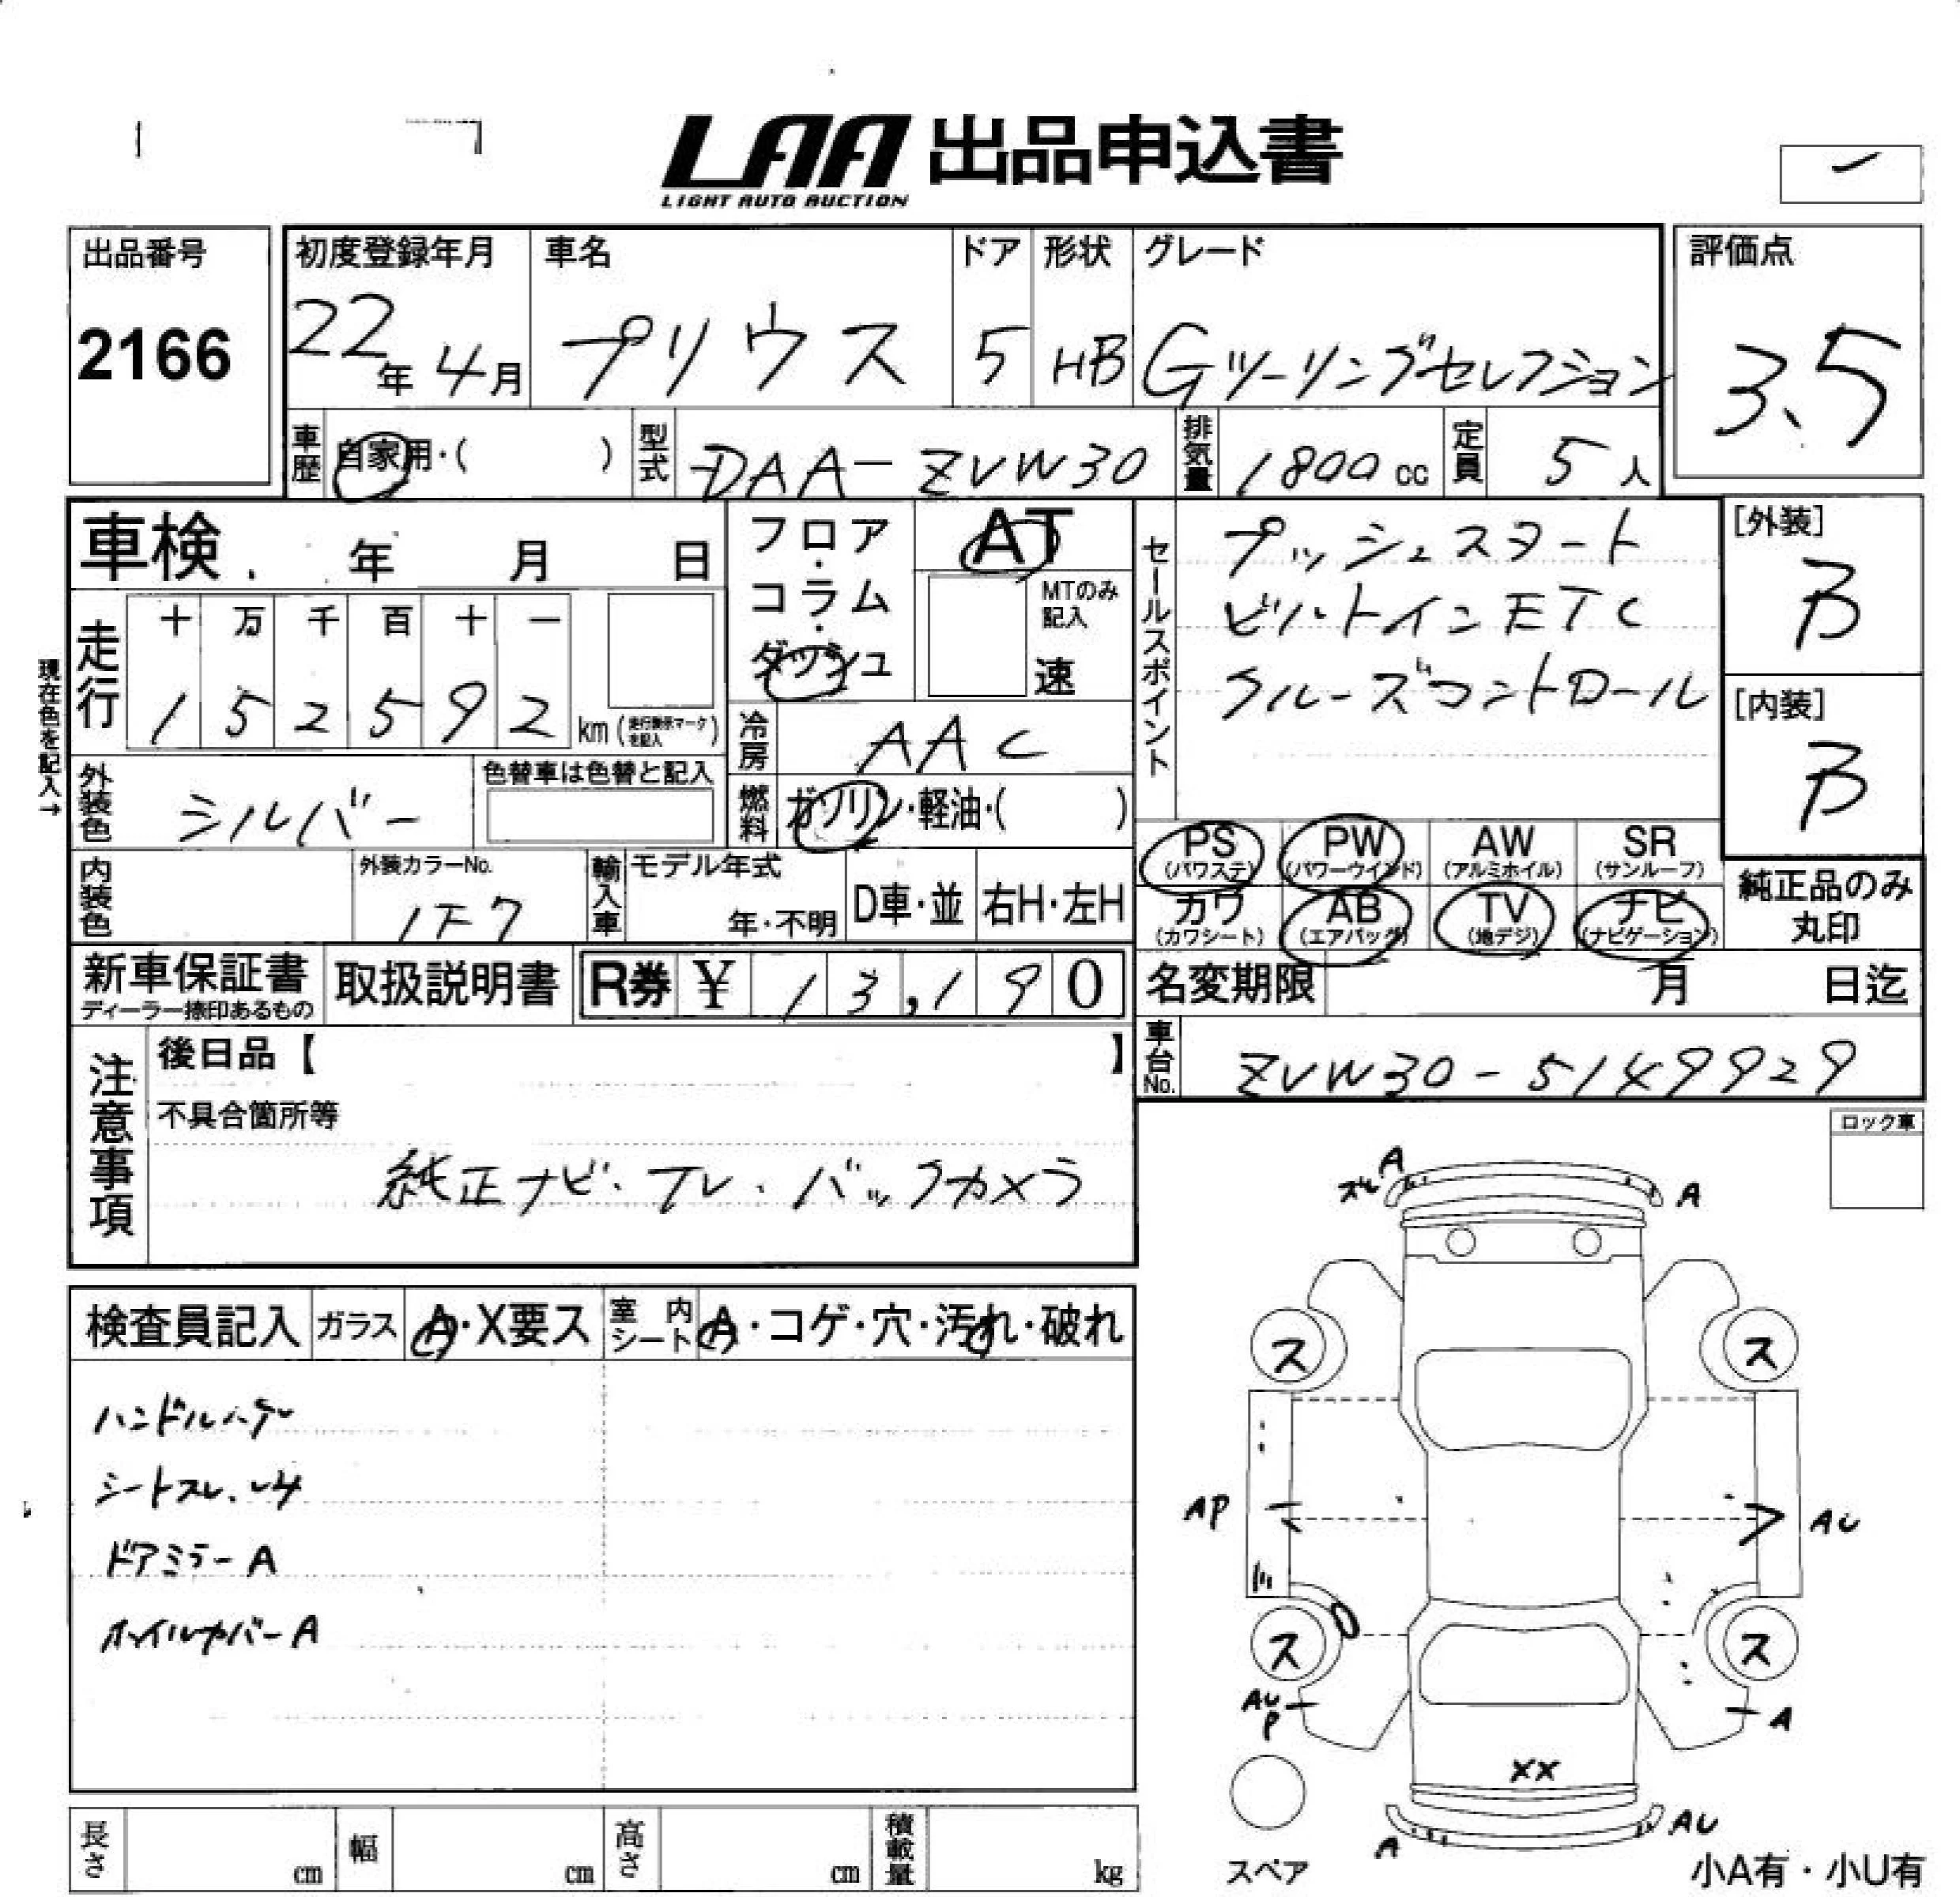 LAA 出品申込書
LIGHT AUTO AUCTION
出品番号
2166
初度登録年月
22年4月
車名
プリウス
ドア
5
形状
HB
グレード
Gツーリングセレクション
評価点
3.5
車歴
自家用・( )
型式
DAA-ZVW30
排気量
1800cc
定員
5人
車検 年 月 日
現在色を記入→
走行
十 万 千 百 十 一
1 5 2 5 9 2 km (走行表示マークを記入)
フロア・コラム・ダッシュ
AT
MTのみ記入
速
冷房
AAC
燃料
ガソリン・軽油・( )
外装色
シルバー
色替車は色替と記入
内装色
外装カラーNo.
1F7
輸入車
モデル年式
年・不明
D車・並
右H・左H
セールスポイント
プッシュスタート
ビルトインETC
クルーズコントロール
[外装]
B
[内装]
B
PS (パワステ)
PW (パワーウインド)
AW (アルミホイル)
SR (サンルーフ)
カワ (カワシート)
AB (エアバッグ)
TV (地デジ)
ナビ (ナビゲーション)
純正品のみ丸印
新車保証書
ディーラー捺印あるもの
取扱説明書
R券 ¥ 13,190
名変期限 月 日迄
車台No.
ZVW30-5149929
注意事項
後日品【 】
不具合箇所等
純正ナビ・TV・バックカメラ
ロック車
検査員記入
ガラス
A・X要ス
室内シート
A・コゲ・穴・汚れ・破れ
ハンドルハゲ
シートスレ、シミ
ドアミラーA
ホイルカバーA
A
スレ
A
ス
ス
AP
AU
ス
ス
AU
P
A
XX
A
AU
スペア
小A有・小U有
長さ cm
幅 cm
高さ cm
積載量 kg